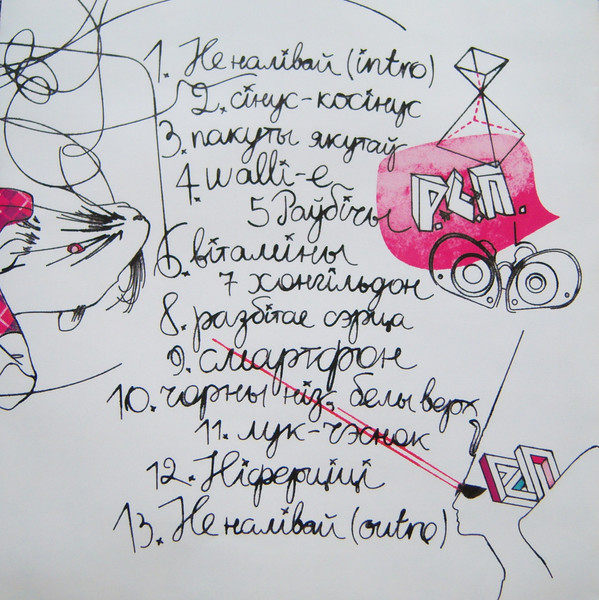 1. Не налівай (intro)
2. сінус-косінус
3. пакуты якутаў
4. walli-e
5 Раўбічы
Р.С.П.
6. вітаміны
7 хонгільдон
8. разбітае сэрца
9. смартфон
10. чорны ніз, белы верх
11. лук-чэснок
РСП
12. Ніферціці
13. Не налівай (outro)